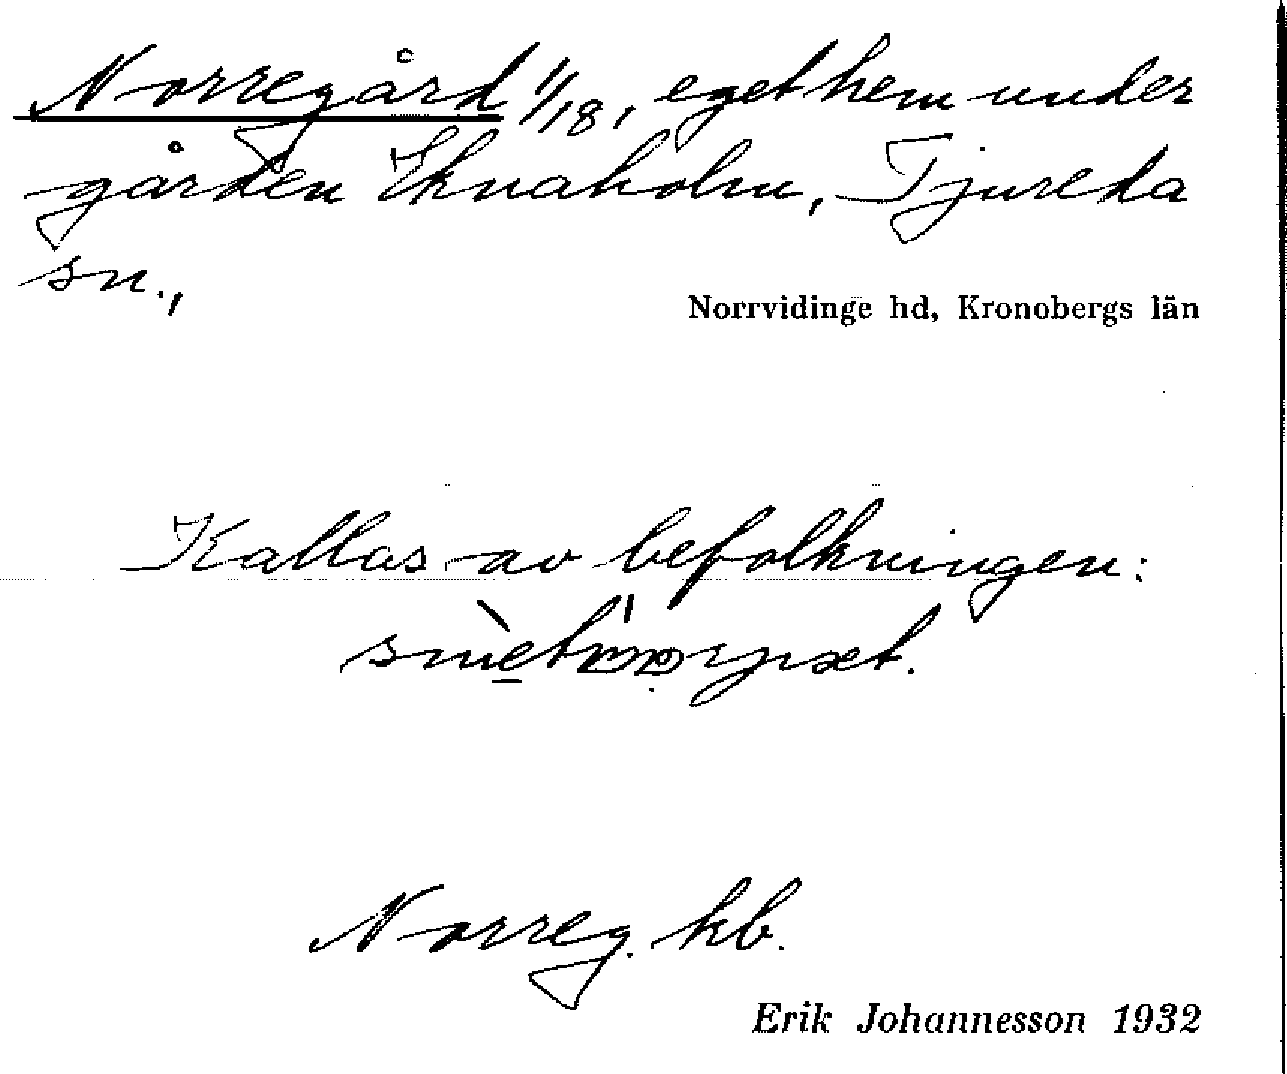 Norregård 1/18, egethem under
gården Eknaholm, Tjureda
sn.,
Norrvidinge hd, Kronobergs län
Kallas av befolkningen:
Norreg. kb.
Erik Johannesson 1932